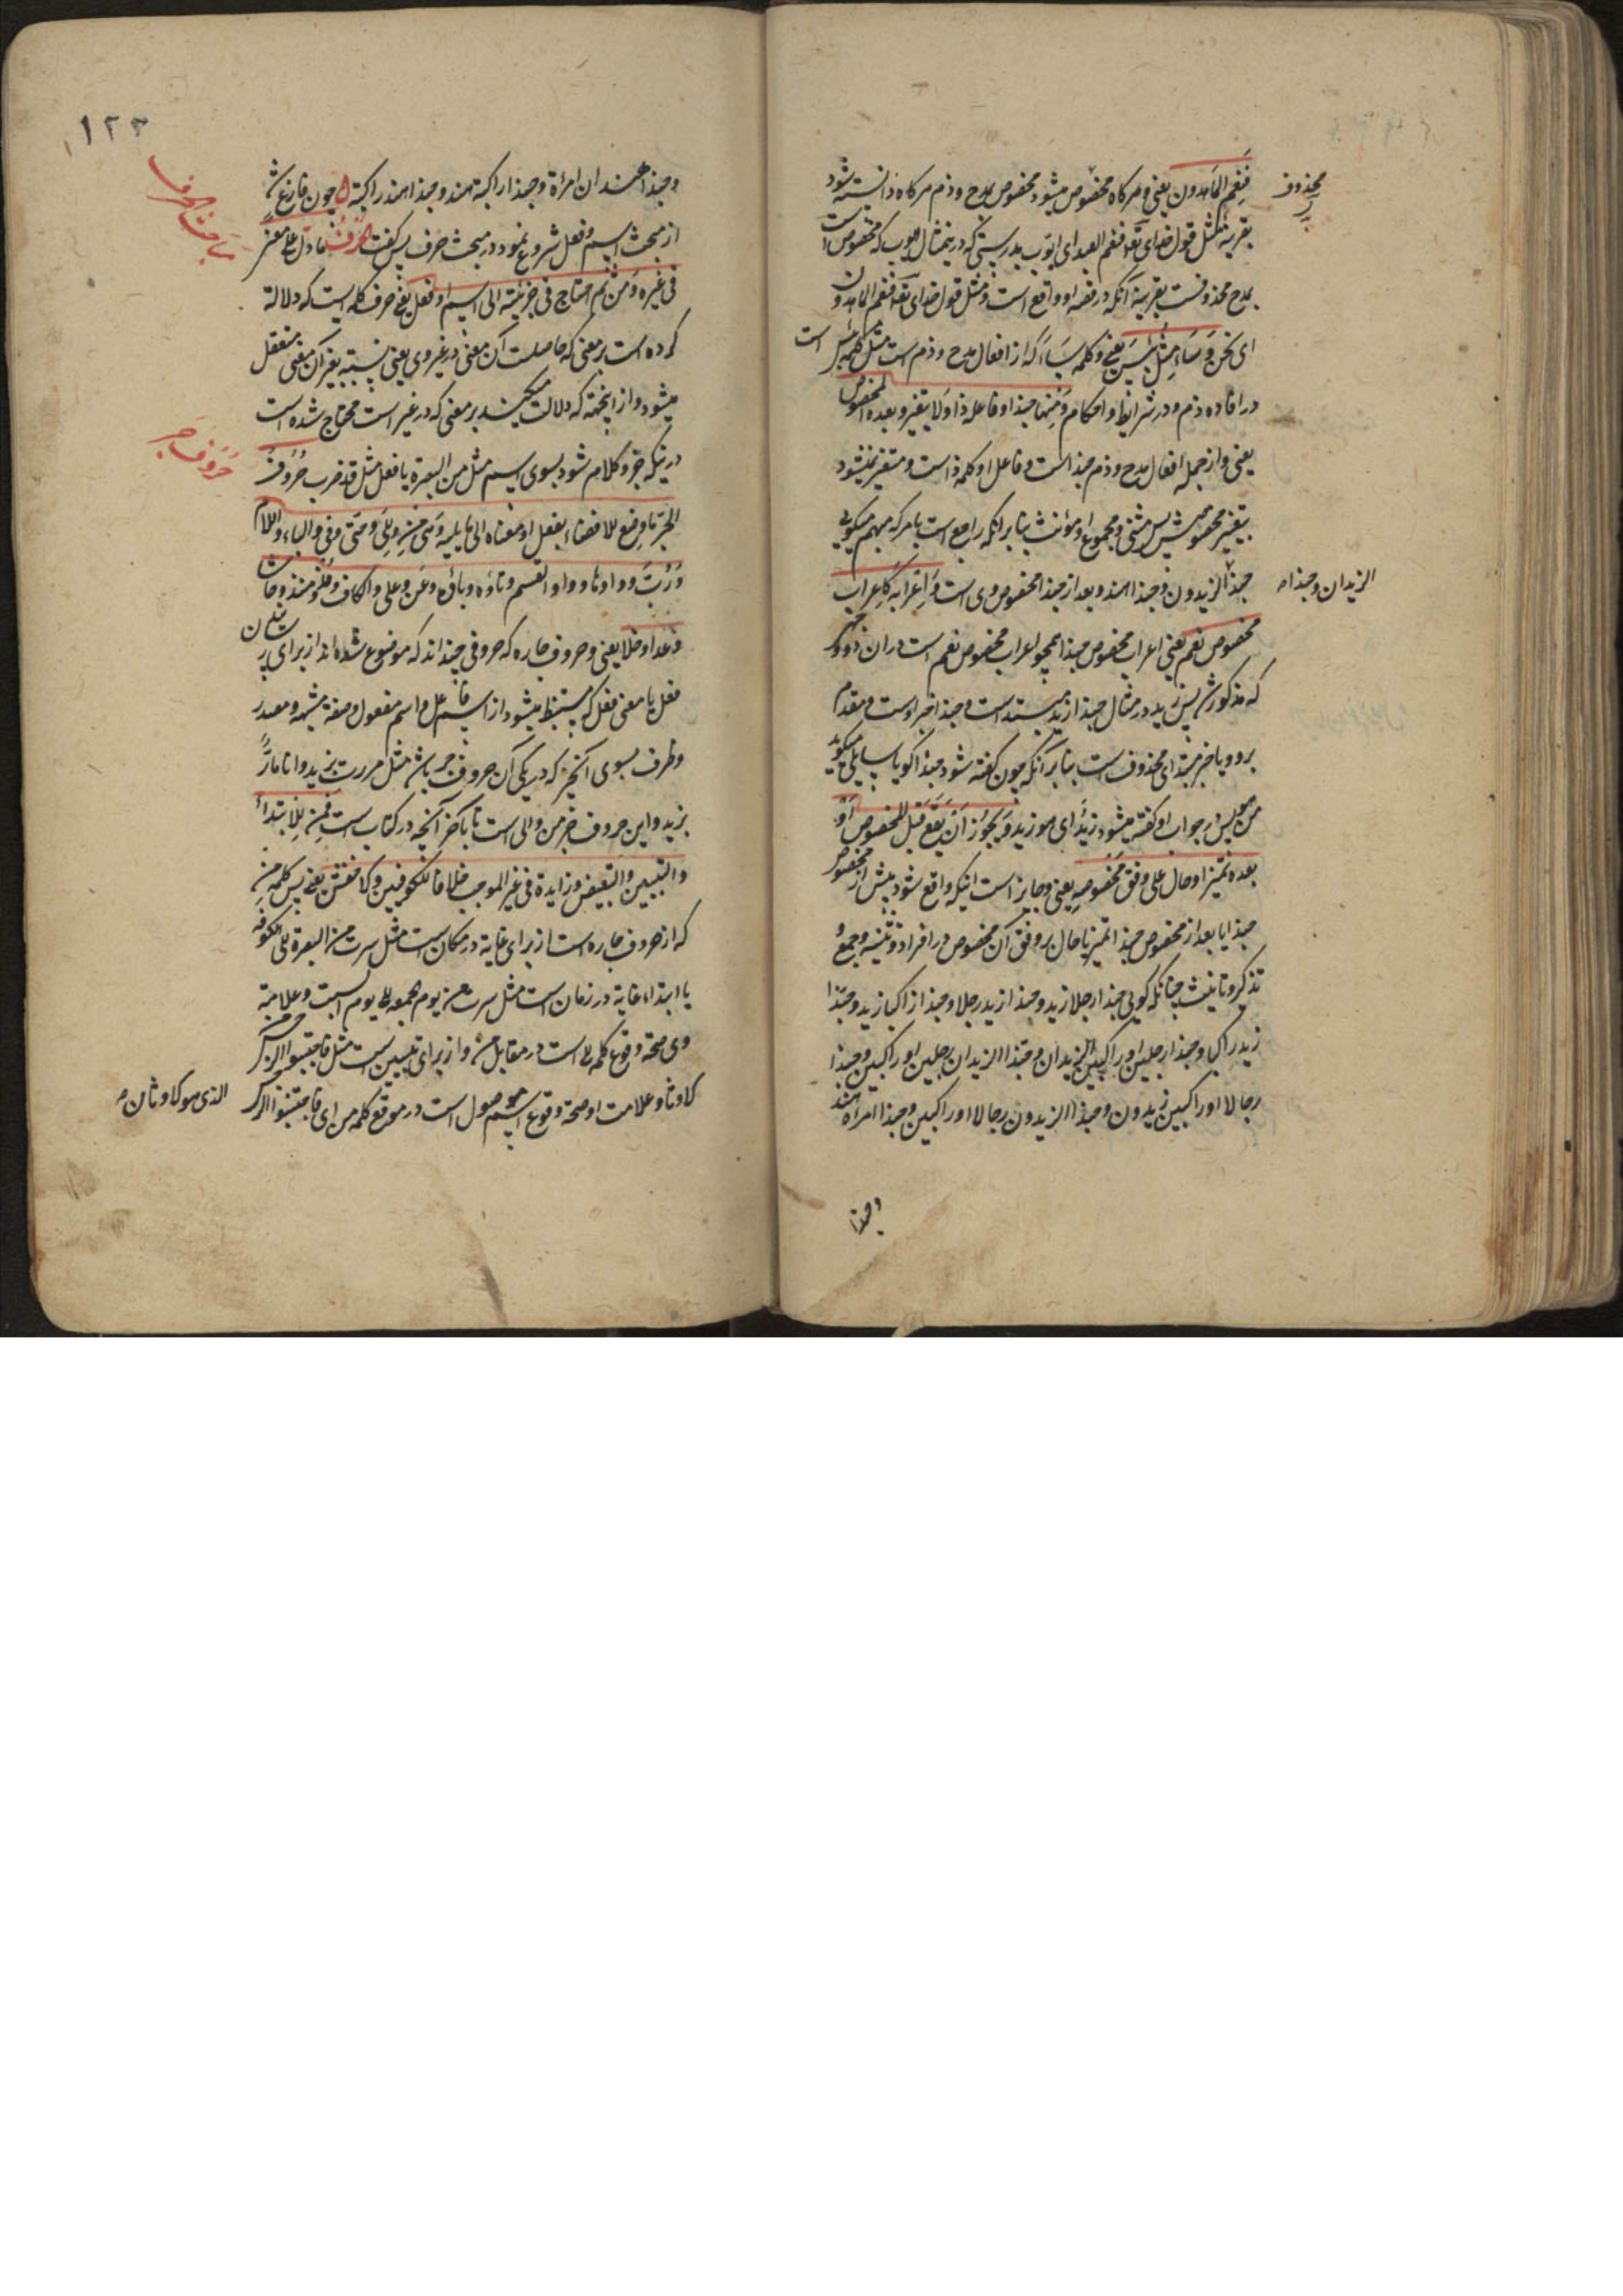 فَنِعْمَ المَاهِدون یعنی و هر کاه مخصوص میشود مخصوص بمدح و ذم هر کاه دانسته شود
محذوف
بقرینه مثل قول خدای تعالی فنعم العبد ای ایوب بدرستی که درینمثال ایوب که مخصوص است
بمدح محذوفست بقرینه آنکه در قصه او واقع است و مثل قول خدای تعالی فنعم الماهدون
ای نحن وَسَاءَ مِثْلُ بِئْسَ یعنی و کلمه سَاءَ که از افعال مدح و ذم است مثل کلمه بئس است
در افاده ذم و در شرایط و احکام وَمِنْها حبذا و فاعله ذا وَلَا یتغیر و بعده المخصوص
یعنی و از جمله افعال مدح و ذم حبذا است و فاعل او کلمه ذا است و متغیر نمیشود
بتغیر مخصوصش پس مثنی و مجموع و مؤنث بنابر انکه راجع است بامر که مبهم میکویی
حبذا الزیدون و حبذا هند و بعد از حبذا مخصوص وی است وَاِعْرَابُه کَاِعراب
الزیدان و حبذا
مخصوص نعم یعنی اعراب مخصوص حبذا همچو اعراب مخصوص نعم است در ان دو وجهی
که مذکور شد پس زید در مثال حبذا زید مبتدا است و حبذا خبر اوست و مقدم
برو و یا خبر مبتدای محذوف است بنابر آنکه چون کفته شود حبذا کویا سایلی میکوید
من هو پس در جواب او کفته میشود زیدٌ ای هو زید وَیَجُوز اَنْ یَقَعَ قَبْلَ المخصوص اَوْ
بعده تمییز او حال علی وفق مَخْصُوصِهِ یعنی و جایز است اینکه واقع شود پیش از مخصوص
حبذا یا بعد از مخصوص حبذا تمییز یا حال بر وفق آن مخصوص در افراد و تثنیه و جمع و
تذکیر و تانیث چنانکه کویی حبذا رجلا زید و حبذا زید رجلا و حبذا راکبا زید و حبذا
زید راکبا و حبذا رجلین او راکبین الزیدان و حبذا الزیدان رجلین او راکبین و حبذا
رجالا او راکبین زیدون و حبذا الزیدون رجالا او راکبین و حبذا امراة هند
وحبذا
۱۲۳
و حبذا هندان امرأة و حبذا راکبة هند و حبذا هند راکبة چون فارغ شد
مباحث الحرف
از مبحث اسم و فعل شروع نمود در مبحث حرف پس کفت الحَرْفُ مادل علی معنی
فی غیره وَمِنْ ثَم احتاج فی جزئیته الی اسم او فعل یعنی حرف کلمه ایست که دلالة
کرده است بر معنی که حاصلست آن معنی در غیر وی یعنی بنسبة بغیر آن معنی متعقل
میشود و از اینجهة که دلالت میکند بر معنی که در غیر است محتاج شده است
در اینکه جزو کلام شود بسوی اسم مثل من البصرة یا فعل مثل قد ضرب حُرُوفُ
حُرُوف جر
الجرّ ما وضع للافضاء بفعل او معناه الی ما یلیه وَهی مِنْ وَاِلَی وَحَتّی وفِی والباء واللام
وَرُبَّ وواوها وواو القسم وتاؤه وباؤه وعَن وعلی والکاف وَمُذْ ومنذ وحاشا
وعدا وخلا یعنی و حروف جاره که حروفی چند اند که موضوع شده اند از برای رسانیدن
فعل یا معنی فعل که مستنبط میشود از اسم فاعل و اسم مفعول و صفة مشبهه و مصدر
و ظرف بسوی آنچیز که در پی آن حروف جر باشد مثل مررت بزید و انا مارٌّ
بزید و این حروف جر من و الی است تا باخر آنچه در کتاب است فَمِنْ لِلابتداءِ
والتبیین والتبعیض وزایدة فی غیر الموجب خلافا للکوفیین والاخفش یعنی پس کلمه مِنْ
که از حروف جاره است از برای غایة در مکان است مثل سرت من البصرة الی الکوفة
یا ابتداء غایة در زمان است مثل سرت من یوم الجمعة الی یوم السبت و علامة
وی صحة وقوع کلمه الی است در مقابل من و از برای تبیین است مثل فاجتنبوا الرجس من
الاوثان و علامت او صحة وقوع اسم موصول است در موقع کلمه من ای فاجتنبوا الرجس
الذی هو الاوثان